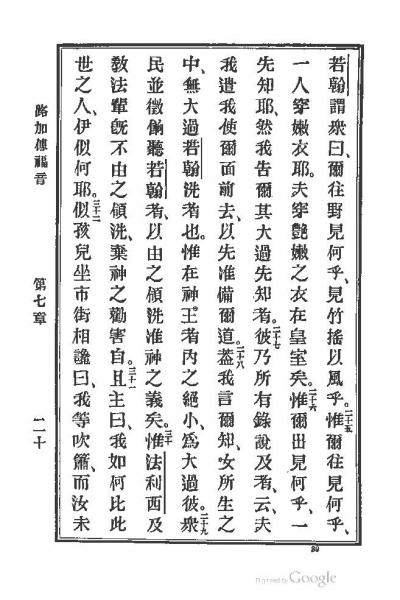 若翰謂衆曰、爾往野見何乎、見竹搖以風乎。二十五惟爾往見何乎、
一人穿嫩衣耶。夫穿艷嫩之衣在皇室矣。二十六惟爾出見何乎、一
先知耶、然我告爾其大過先知者。二十七彼乃所有錄說及者、云、夫
我遣我使爾面前去、以先准備爾道。二十八葢我言爾知、女所生之
中、無大過若翰洗者也。惟在神王者內之絕小、爲大過彼。二十九衆
民並徵偹聽若翰者、以由之領洗准神之義矣。三十惟法利西及
敎法輩旣不由之領洗、棄神之勸害自。三十一且主曰、我如何比此
世之人、伊似何耶。三十二似孩兒坐市街相讒曰、我等吹簫而汝未
路加傳福音 第七章 二十
Digitized by Google